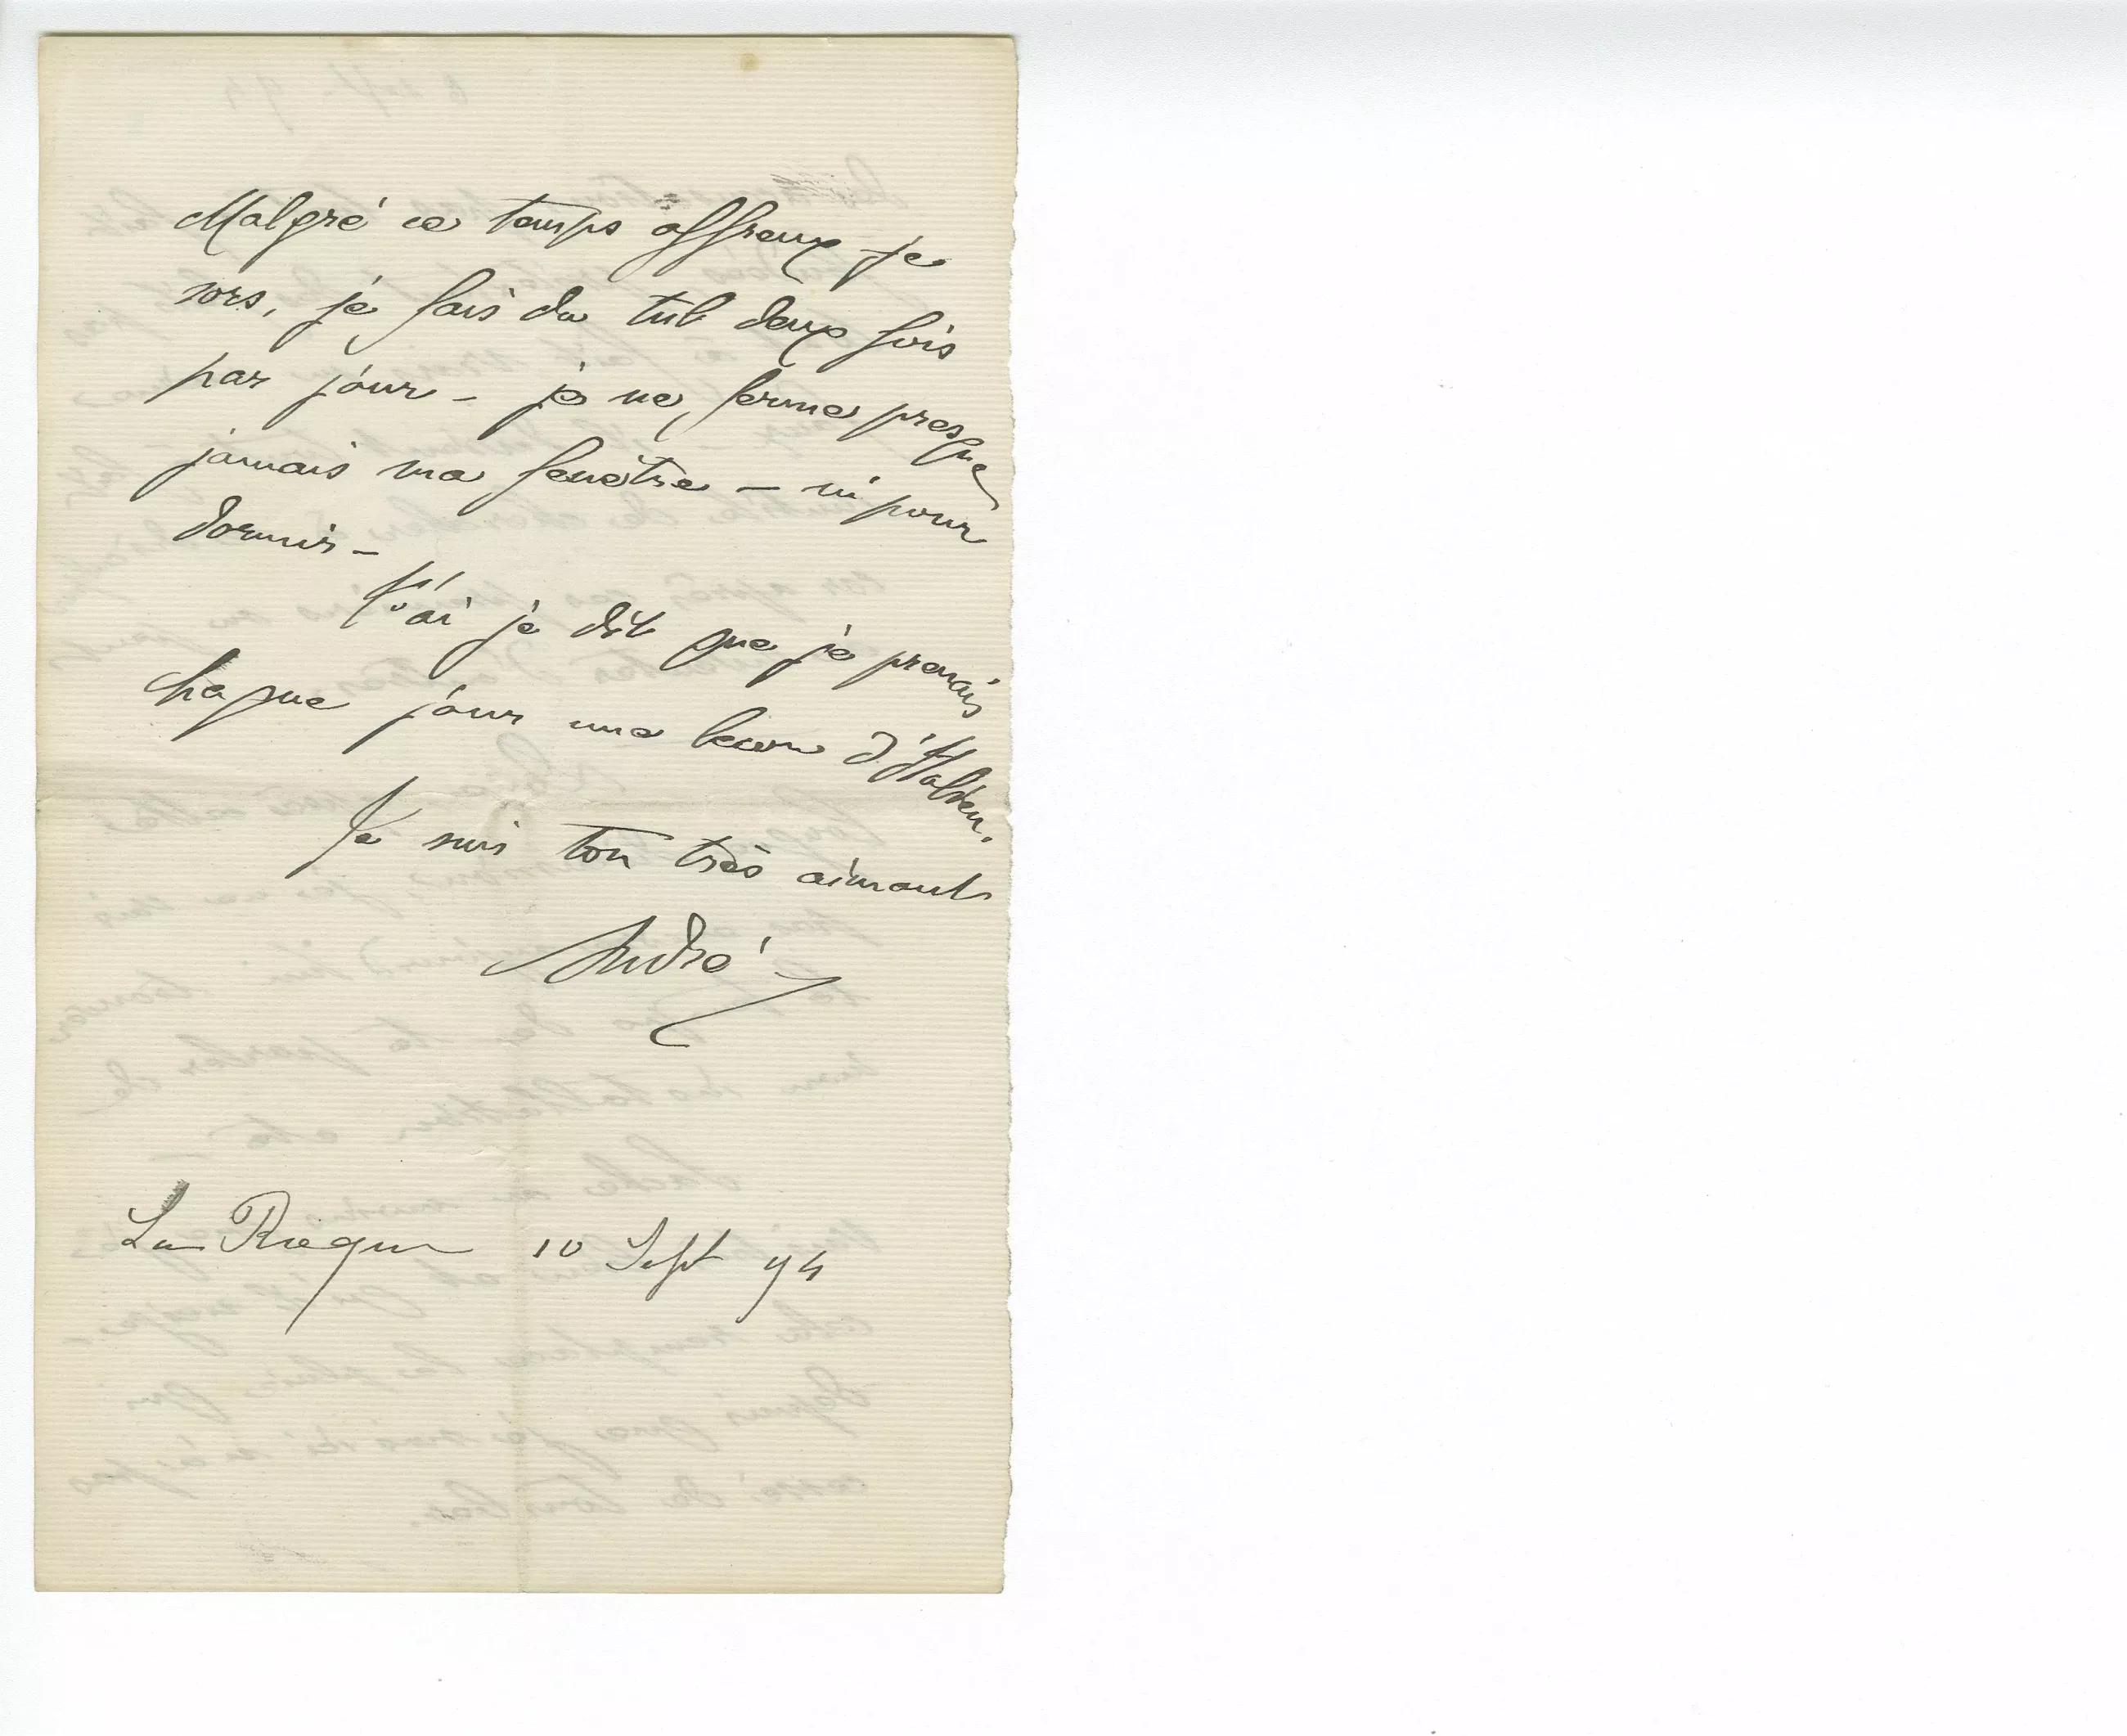 Malgré ce temps affreux je
sors, je fais du tub deux fois
par jour – je ne ferme presque
jamais ma fenêtre – ni pour
dormir –
T'ai je dit que je prenais
chaque jour une leçon d'Italien.
Je suis ton très aimant
André
La Roque 10 Sept 94